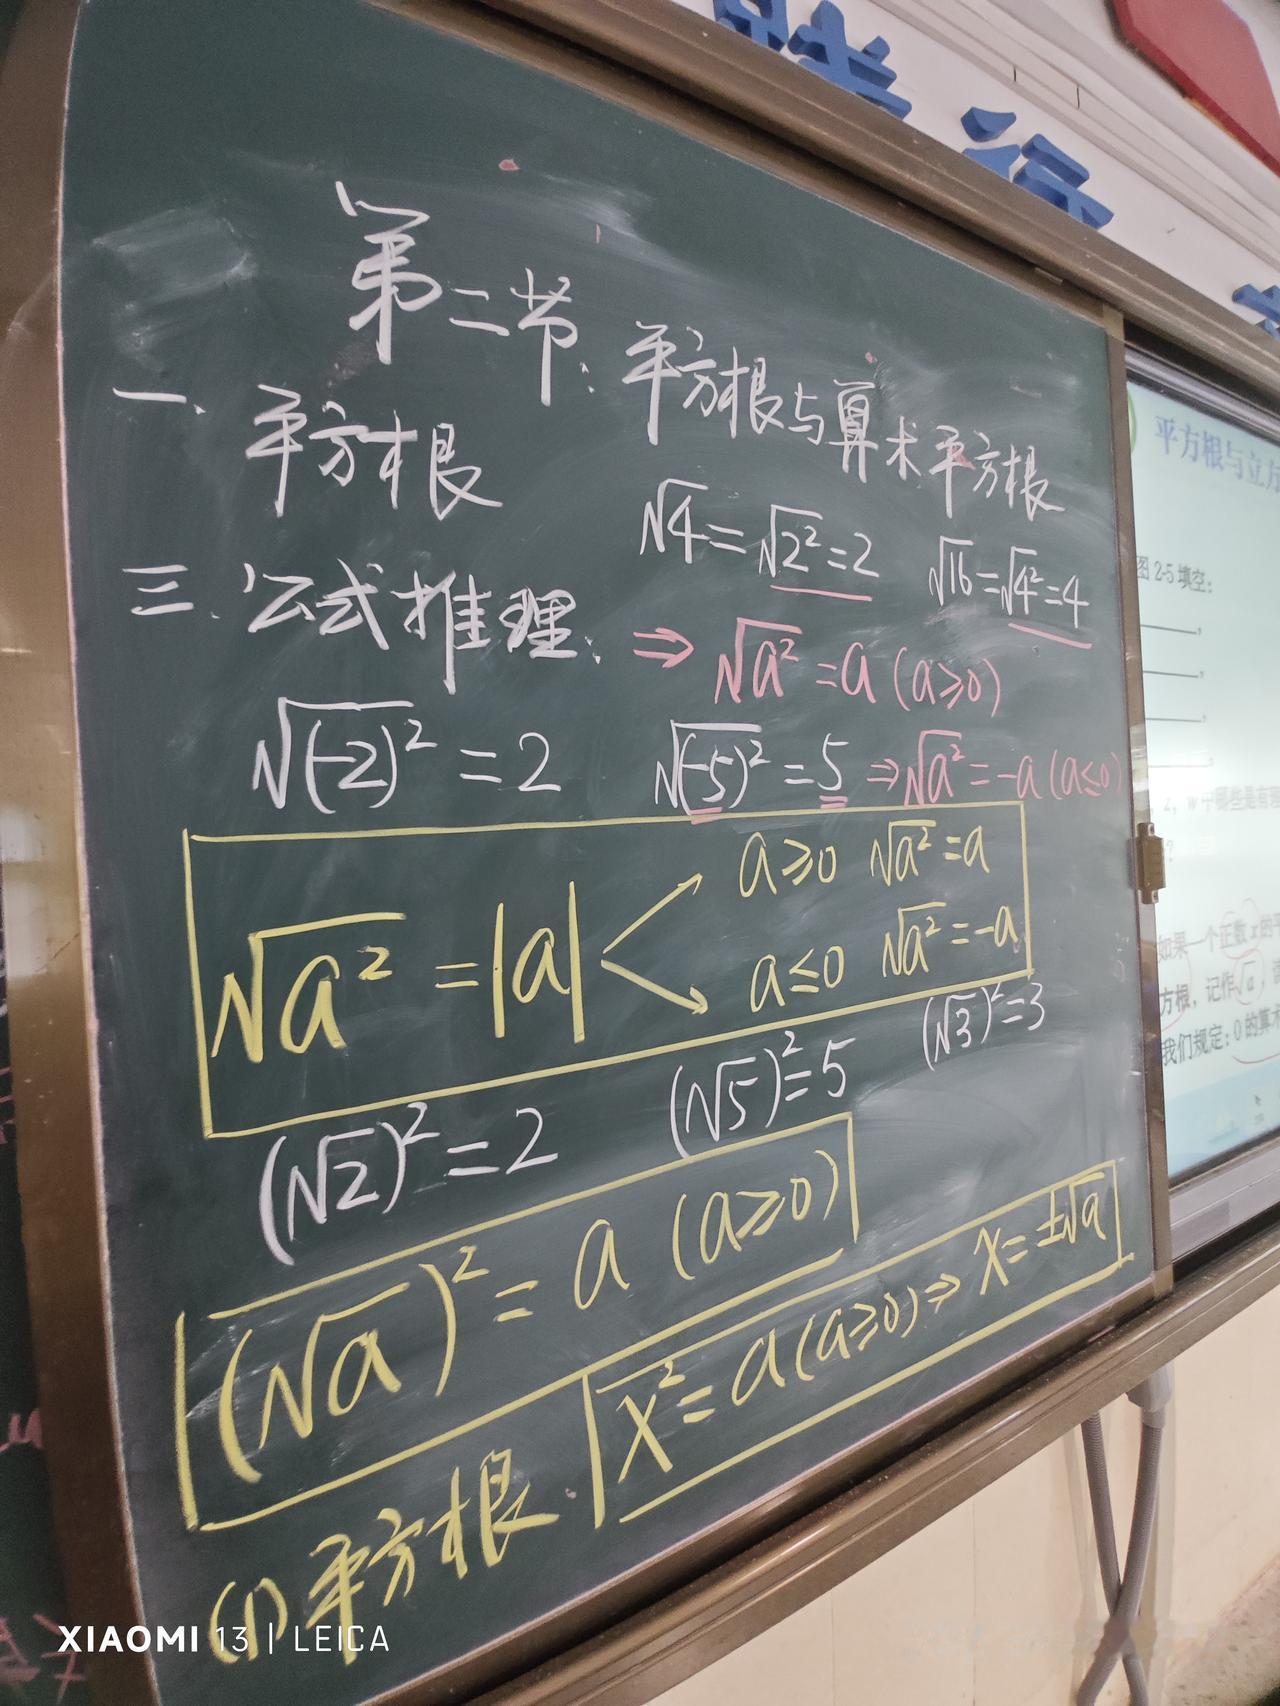 第二节：平方根与算术平方根
一、平方根
√4=√2²=2 √16=√4²=4
三、公式推理、⇒ √a²=a (a≥0)
√(-2)²=2 √(-5)²=5 ⇒√a²=-a (a≤0)
√a²=|a|
a≥0 √a²=a
a≤0 √a²=-a
(√2)²=2 (√5)²=5 (√3)²=3
(√a)²=a (a≥0)
(1)平方根. x²=a(a≥0)⇒x=±√a
平方根与立方
图2-5填空:
如果一个正数x的
方根，记作√a，
我们规定:0的算
XIAOMI 13 | LEICA